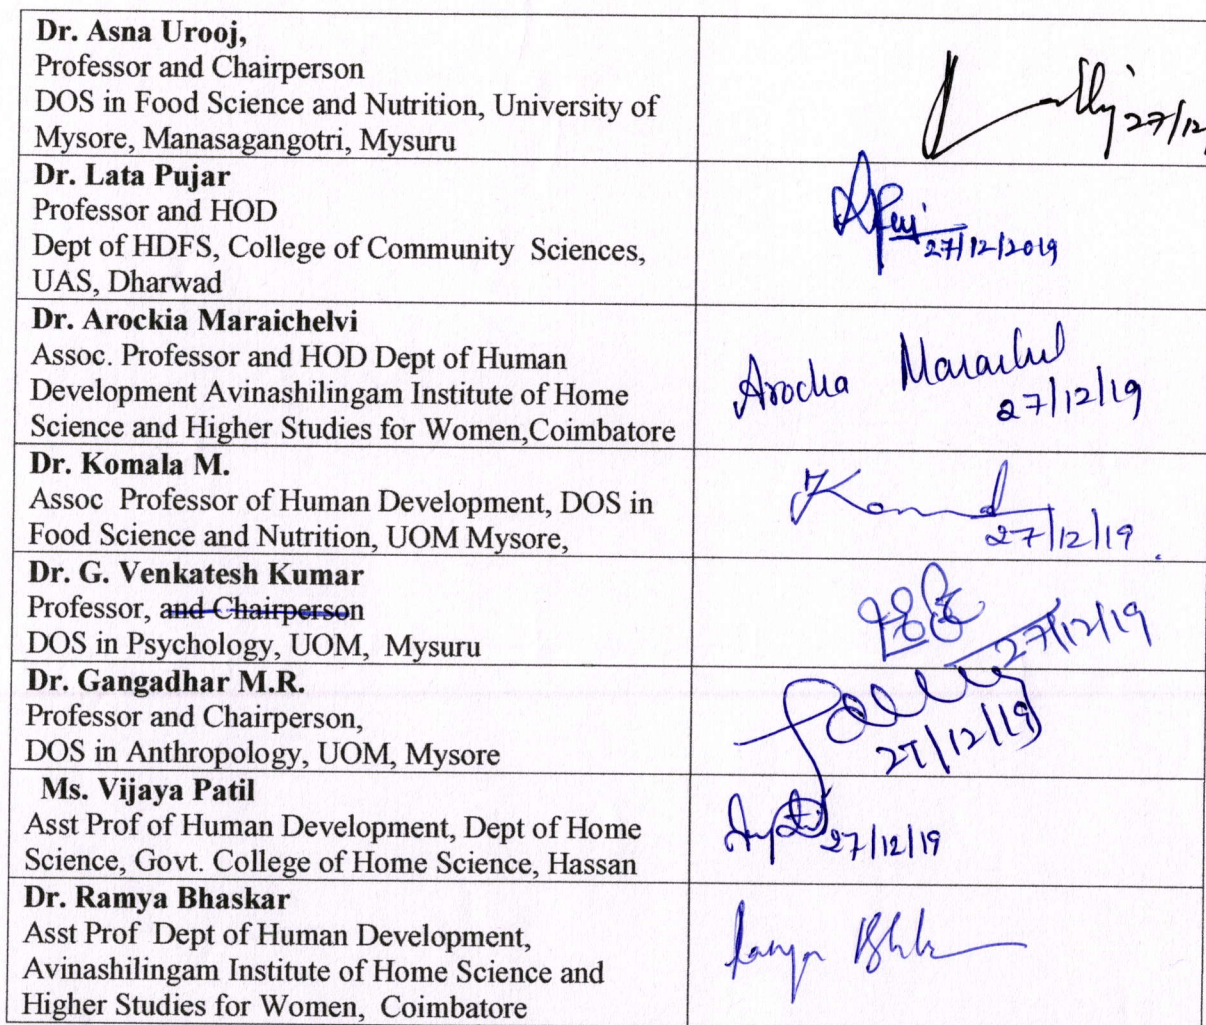 Dr. Asna Urooj,
Professor and Chairperson
DOS in Food Science and Nutrition, University of
Mysore, Manasagangotri, Mysuru
27/12/
Dr. Lata Pujar
Professor and HOD
Dept of HDFS, College of Community Sciences,
UAS, Dharwad
27/12/2019
Dr. Arockia Maraichelvi
Assoc. Professor and HOD Dept of Human
Development Avinashilingam Institute of Home
Science and Higher Studies for Women,Coimbatore
27/12/19
Dr. Komala M.
Assoc Professor of Human Development, DOS in
Food Science and Nutrition, UOM Mysore,
27/12/19
Dr. G. Venkatesh Kumar
Professor, and Chairperson
DOS in Psychology, UOM, Mysuru
27/12/19
Dr. Gangadhar M.R.
Professor and Chairperson,
DOS in Anthropology, UOM, Mysore
27/12/19
Ms. Vijaya Patil
Asst Prof of Human Development, Dept of Home
Science, Govt. College of Home Science, Hassan
27/12/19
Dr. Ramya Bhaskar
Asst Prof Dept of Human Development,
Avinashilingam Institute of Home Science and
Higher Studies for Women, Coimbatore